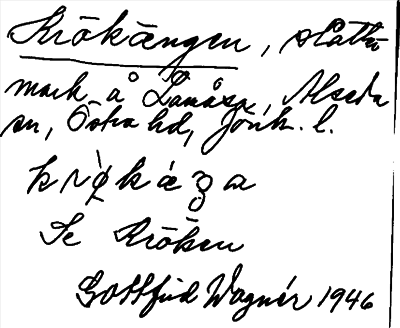 Krökängen, slätter
mark å Lanåsa, Alseda
sn, Östra hd, Jönk. l.
Se Kröken
Gottfrid Wagnér 1946